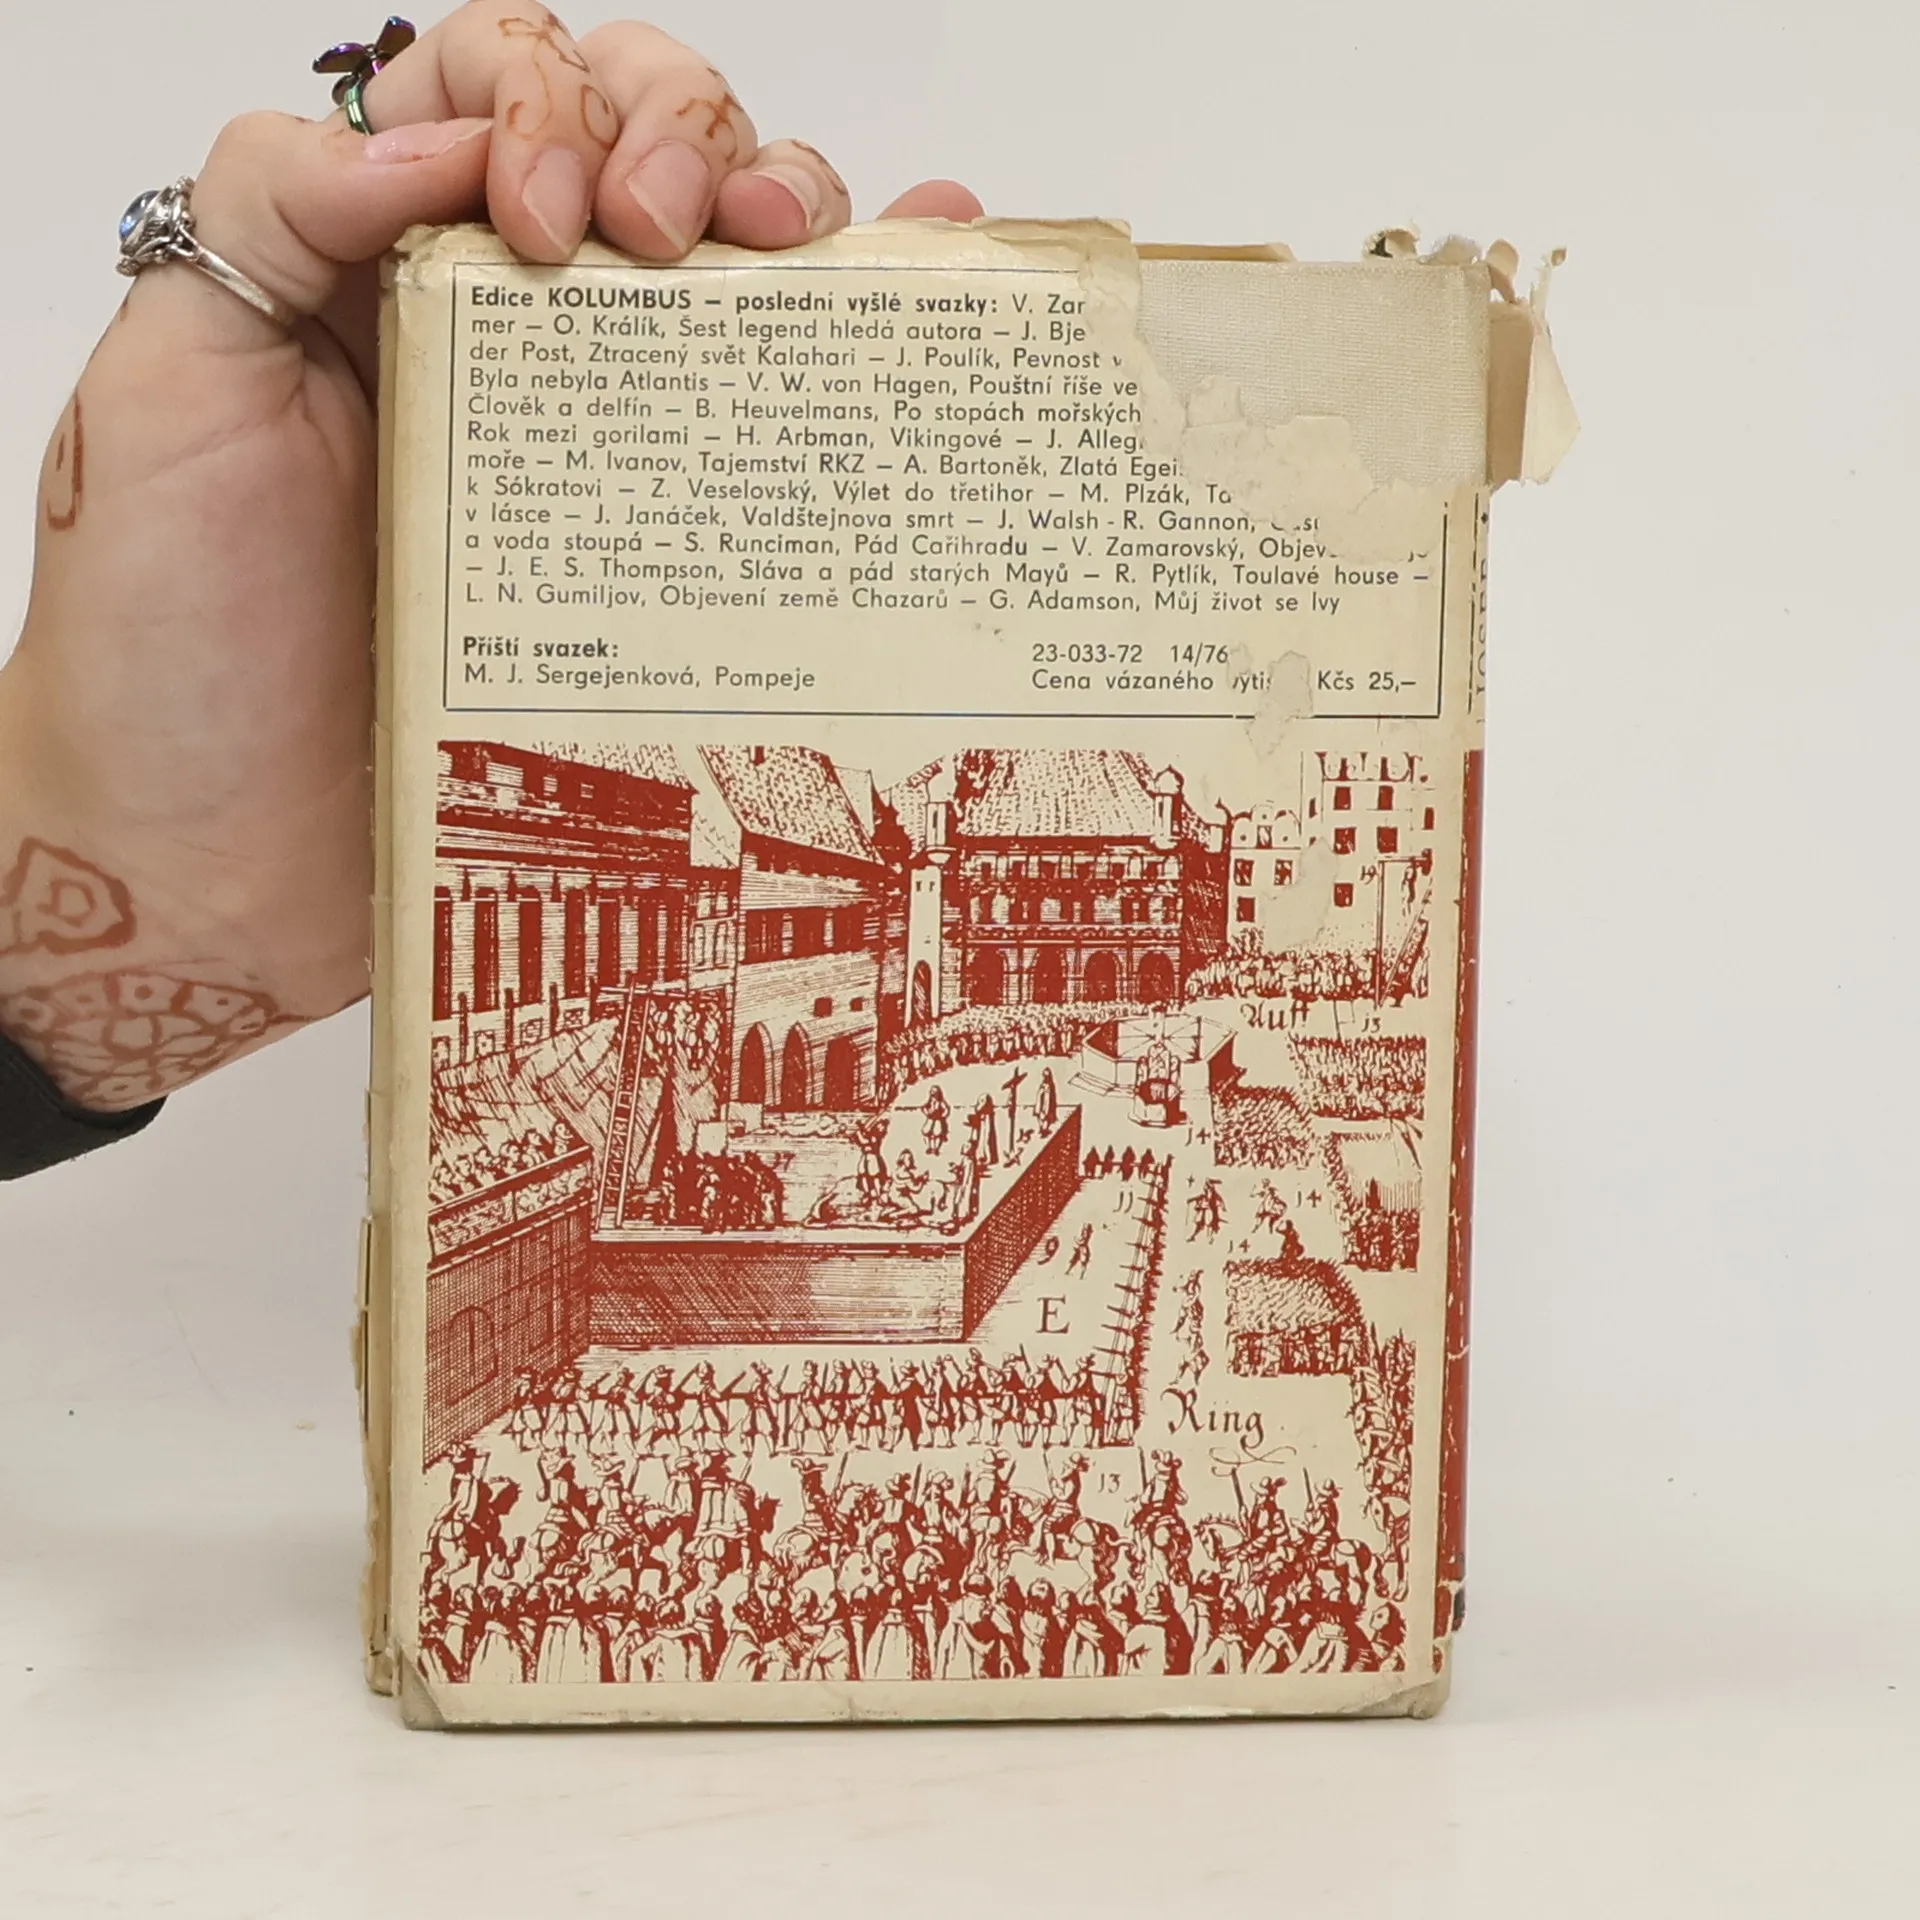 Edice KOLUMBUS – poslední vyšlé svazky: V. Zar
mer – O. Králík, Šest legend hledá autora – J. Bje
der Post, Ztracený svět Kalahari – J. Poulík, Pevnost v
Byla nebyla Atlantis – V. W. von Hagen, Pouštní říše ve
Člověk a delfín – B. Heuvelmans, Po stopách mořských
Rok mezi gorilami – H. Arbman, Vikingové – J. Alleg
moře – M. Ivanov, Tajemství RKZ – A. Bartoněk, Zlatá Egei
k Sókratovi – Z. Veselovský, Výlet do třetihor – M. Plzák, Ta
v lásce – J. Janáček, Valdštejnova smrt – J. Walsh - R. Gannon,
a voda stoupá – S. Runciman, Pád Cařihradu – V. Zamarovský, Objev
– J. E. S. Thompson, Sláva a pád starých Mayů – R. Pytlík, Toulavé house –
L. N. Gumiljov, Objevení země Chazarů – G. Adamson, Můj život se lvy
Příští svazek:
M. J. Sergejenková, Pompeje
23-033-72 14/76
Cena vázaného výtis Kčs 25,–
JOSEF
19
Auff
13
15
14
11
14
14
9
E
Ring
13